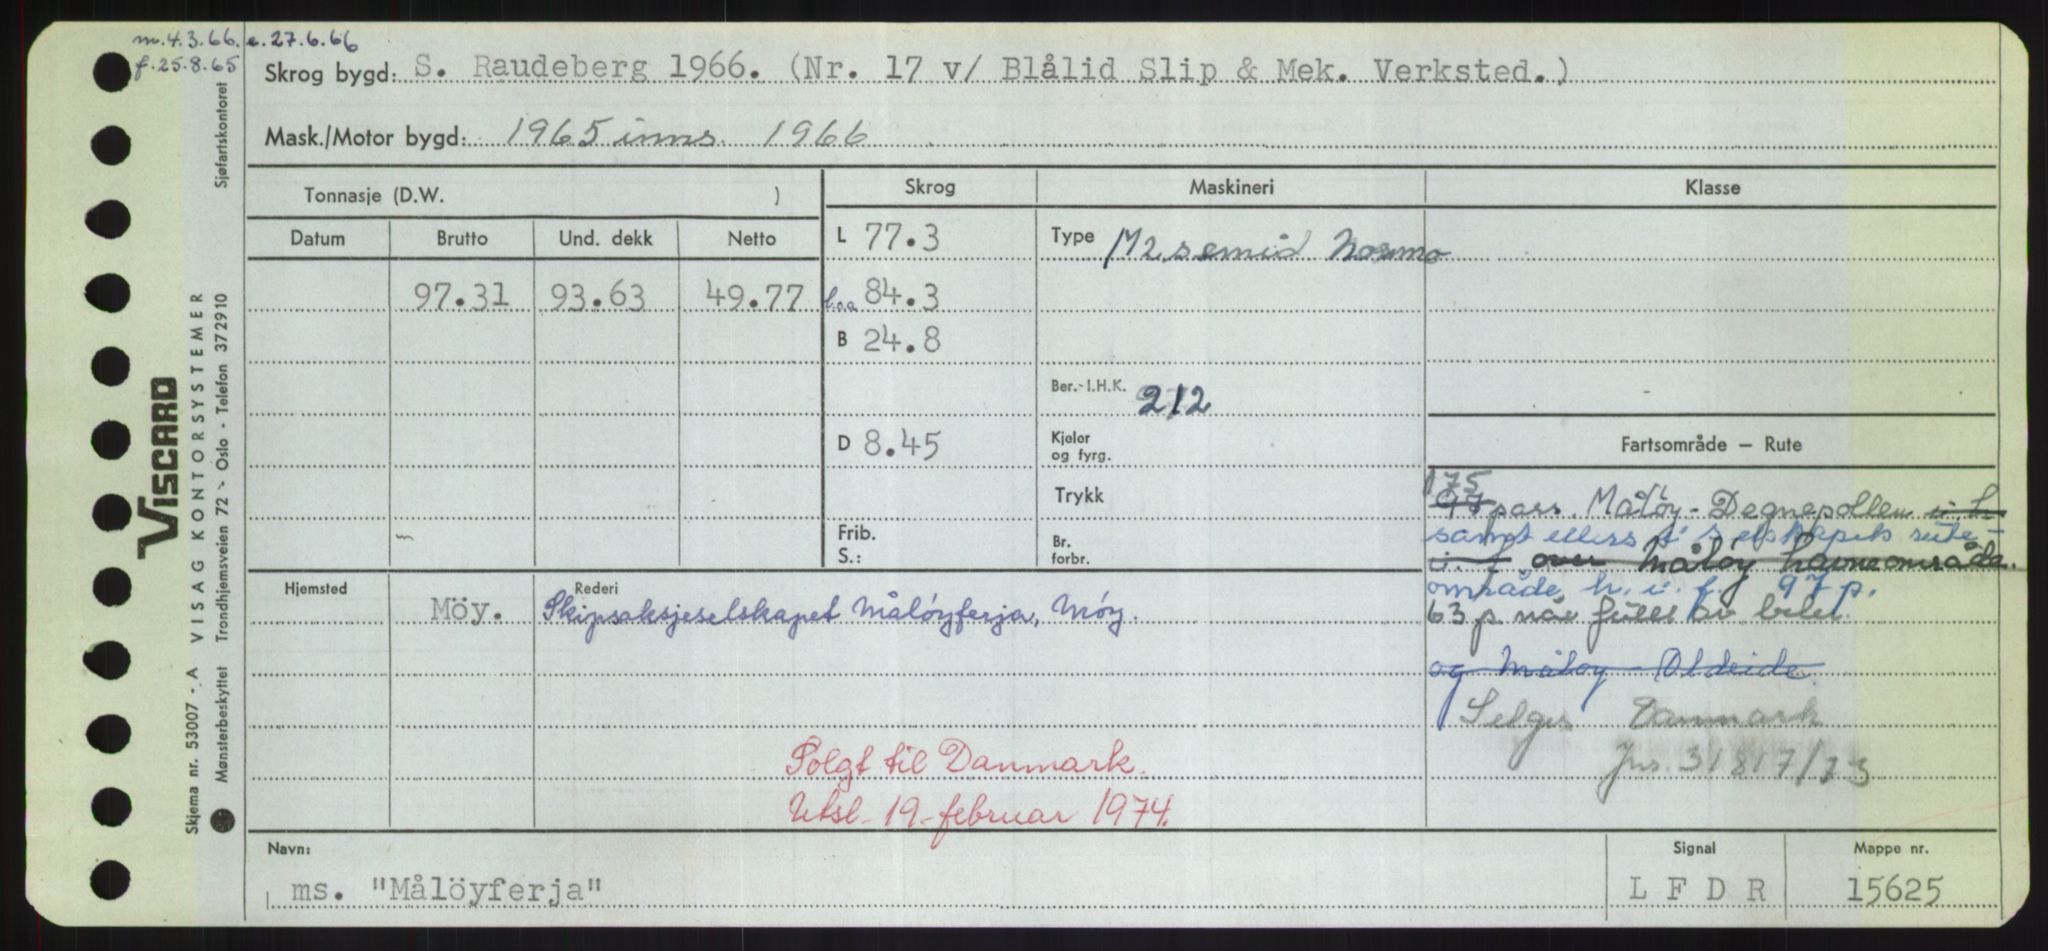 m. 4.3.66. e. 27.6.66
f. 25.8.65
Skrog bygd: S. Raudeberg 1966. (Nr. 17 v/ Blålid Slip & Mek. Verksted.)
Mask./Motor bygd: 1965 inns. 1966
Tonnasje (D.W. )
Skrog
Maskineri
Klasse
Datum Brutto Und. dekk Netto
L 77.3
Type M 2 s emid Normo
97.31 93.63 49.77
l.o.a 84.3
B 24.8
Ber.-I.H.K. 212
D 8.45
Kjeler
og fyrg.
Trykk
Frib.
S.:
Br.
forbr.
Fartsområde — Rute
175
97 pass. Måløy - Degnepollen i. h.
samt ellers i selskapets rute-
i. f over Måløy havneområde.
område h. i. f. 97 p.
63 p når fullt av biler.
og Måløy - Oldeide.
Selges Danmark
Jnr. 31817/73
Hjemsted Rederi
Möy. Skipsaksjeselskapet Måløyferja, Möy.
Solgt til Danmark.
Utsl. 19. februar 1974.
Navn:
ms. "Målöyferja"
Signal
L F D R
Mappe nr.
15625
Sjøfartskontoret
VISCARD
VISAG KONTORSYSTEMER
Trondhjemsveien 72 - Oslo - Telefon 372910
Skjema nr. 53007 - A
Mønsterbeskyttet